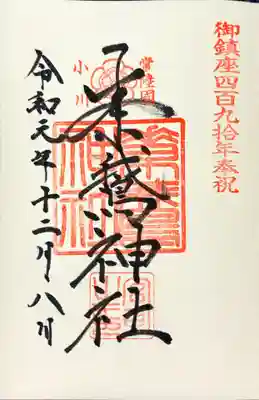 御鎮座四百九拾年奉祝
常陸国
小川
素鵞神社
令和元年十二月八日